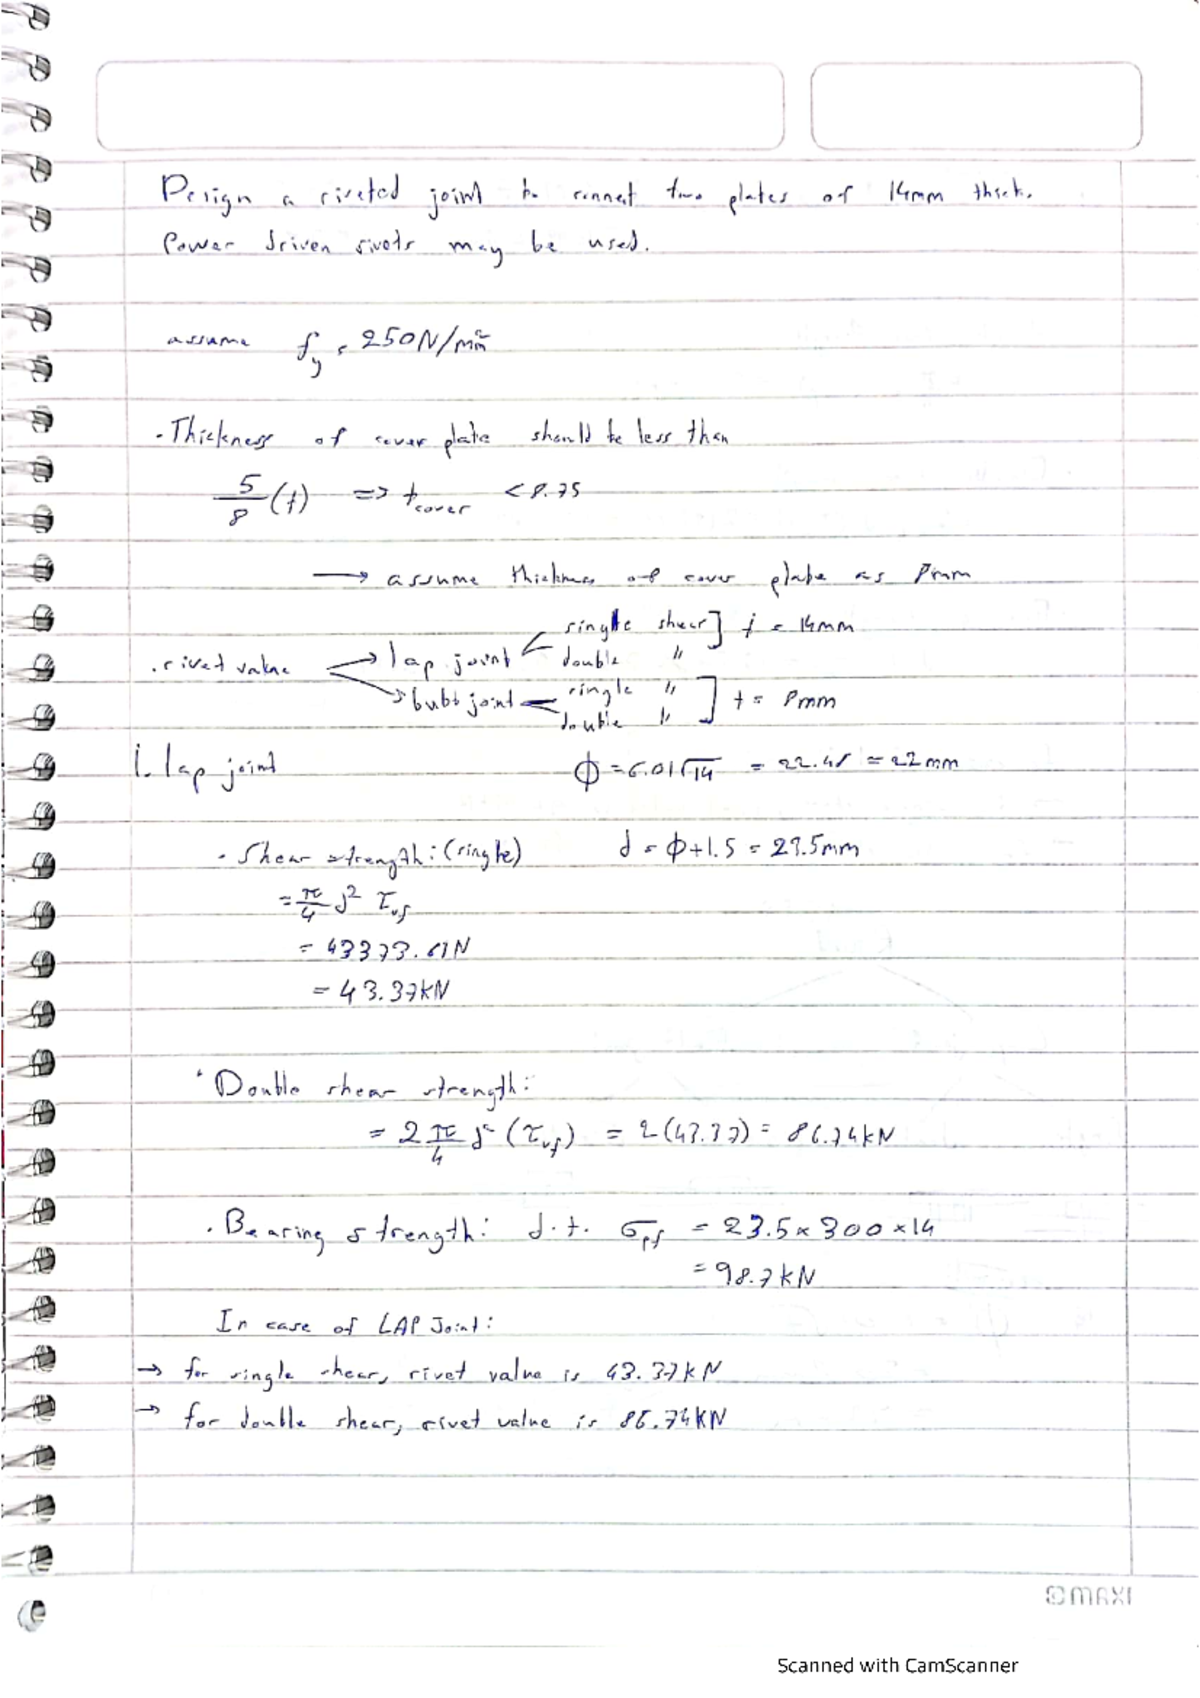 Design a riveted joint to connect two plates of 14mm thick.
Power driven rivets may be used.
assume fy = 250N/mm²
· Thickness of cover plate should be less than
5/8 (t) => t cover < 8.75
→ assume thickness of cover plate as 8mm
· rivet value → lap joint single shear ] t = 14mm
double "
→ butt joint single " ] t = 8mm
double "
1. lap joint ϕ = 6.01√14 = 22.48 = 22mm
· Shear strength: (single) d = ϕ+1.5 = 23.5mm
= π/4 d² τvf
= 43373.61N
= 43.37kN
· Double shear strength:
= 2 π/4 d² (τvf) = 2(43.37) = 86.74kN
· Bearing strength: d.t. σpf = 23.5×300×14
= 98.7kN
In case of LAP Joint:
→ for single shear, rivet value is 43.37kN
→ for double shear, rivet value is 86.74kN
MAXI
Scanned with CamScanner